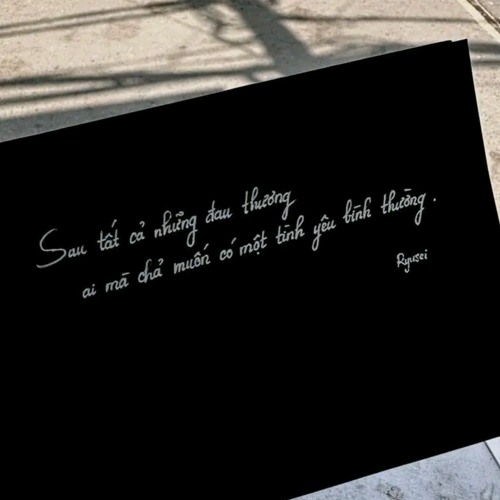 Sau tất cả những đau thương
ai mà chả muốn có một tình yêu bình thường.
Ryusei